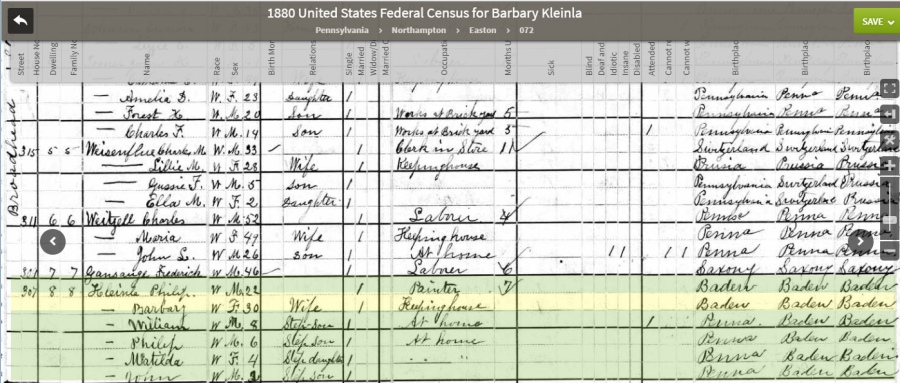 1880 United States Federal Census for Barbary Kleinla
SAVE
Pennsylvania > Northampton > Easton > 072
Street House N Dwelling Family N Name Race Sex Birth Mon Relations Single Married Widow/D Married C Occupati Months U Sick Blind Deaf and Idiotic Insane Disabled Attended Cannot re Cannot w Birthplac Birthplac Birthplac
— Amelia D. W. F. 23 Daughter 1 Pennsylvania Penna Penna
— Forest W. M. 20 Son 1 Works at Brick yard 5 Pennsylvania Penna Penna
— Charles F. W M. 14 Son 1 Works at Brick yard 5 1 Pennsylvania
315 5 5 Charles M W. M. 33 Clerk in Store 11 Switzerland Switzerland Switzerland
— Lillie M. W F. 28 Wife 1 Keeping house Prussia Prussia
— Gussie F. W M. 5 Son 1 Pennsylvania Switzerland Prussia
— Ella M. W F. 2 Daughter 1 Pennsylvania Switzerland Prussia
311 6 6 Charles W M. 52 Labour 4 Penna Penna Penna
— Maria W F. 49 Wife 1 Keeping house Penna Penna Penna
— John L. W M 26 Son 1 At home 1 1 1 1 Penna Penna Penna
7 7 Frederick W M. 46 Labour 6 Saxony Saxony Saxony
307 8 8 Kleinla Philip W M. 22 1 Painter 7 Baden Baden Baden
— Barbary W F. 30 Wife 1 Keeping house Baden Baden Baden
— William W M. 8 Step-Son 1 At home 1 Penna. Baden Baden
— Philip W M. 6 Step Son 1 At home Penna Baden Baden
— Matilda W F. 4 Step daughter 1 " " Penna Baden Baden
— John W M. Step Son 1 Penna Baden Baden
Brodhead